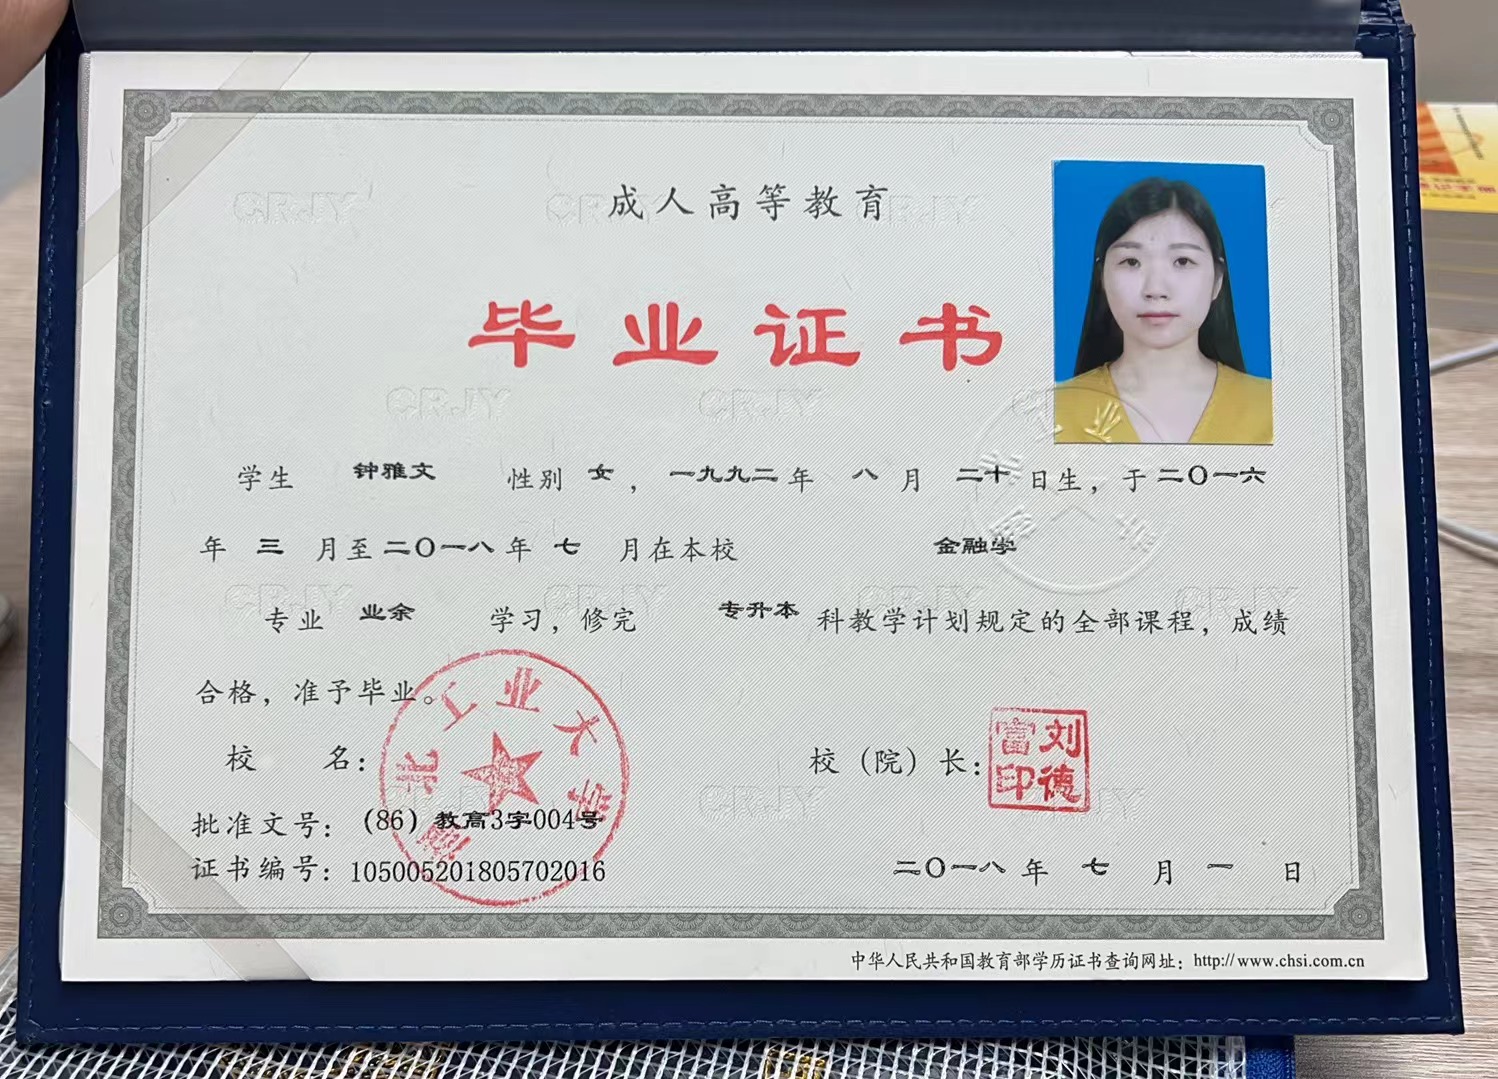 成人高等教育
毕业证书
学生 钟雅文 性别 女，一九九二年 八 月 二十 日生，于二〇一六
年 三 月至二〇一八年 七 月在本校 金融学
专业 业余 学习，修完 专升本 科教学计划规定的全部课程，成绩
合格，准予毕业。
校 名：
湖北工业大学
校（院）长：
刘德富印
批准文号：（86）教高3字004号
证书编号：105005201805702016
二〇一八年 七 月 一 日
中华人民共和国教育部学历证书查询网址：http://www.chsi.com.cn
CRJY